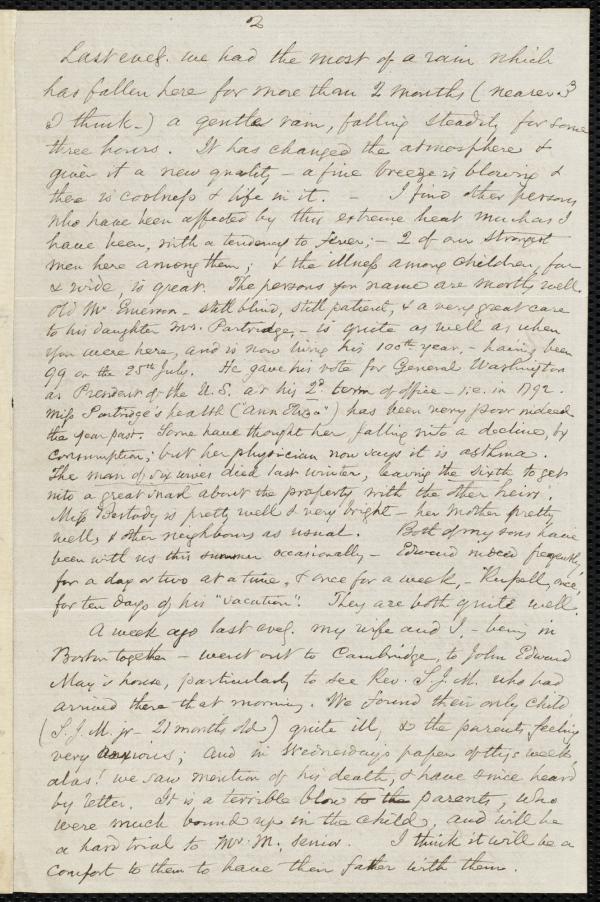 2
Last eveg. we had the most of a rain which
has fallen here for more than 2 months (nearer 3
I think.) a gentle rain, falling steadily for some
three hours. It has changed the atmosphere &
given it a new quality – a fine breeze is blowing &
thee is coolness & life in it. – I find other persons
who have been affected by this extreme heat much as I
have been, with a tendency to fever; – 2 of our strongest
men here among them; & the illness among children, far
& wide, is great. The persons you name are mostly well.
Old Mr. Emerson – still blind, still patient, & a very great care
to his daughter Mrs. Partridge, – is quite as well as when
you were here, and is now living his 100th year, – having been
99 on the 25th July. He gave his vote for General Washington
as President of the U.S. at his 2d. term of office – i.e. in 1792.
Miss Partridge's health ("Ann Eliza") has been very poor indeed
the year past. Some have thought her falling into a decline, by
consumption; but her physician now says it is asthma.
The man of six wives died last winter, leaving the sixth to get
into a great snarl about the property with the other heirs.
Miss Peabody is pretty well & very bright – her mother pretty
well, & other neighbours as usual. Both of my sons have
been with us this summer occasionally – Edward indeed frequently,
for a day or two at a time, & once for a week, – Russell, once,
for ten days of his "vacation". They are both quite well.
A week ago last eveg. my wife and I, – being in
Boston together – went out to Cambridge, to John Edward
May's house, particularly to see Rev. S. J. M. who had
arrived there that morning. We found their only child
(S. J. M. jr – 21 months old) quite ill, & the parents feeling
very anxious; and in Wednesday's paper of this week,
alas! we saw mention of his death, & have since heard
by letter. It is a terrible blow to the parents, who
were much bound up in the child, and will be
a hard trial to Mr. M. senior. I think it will be a
comfort to them to have their father with them.